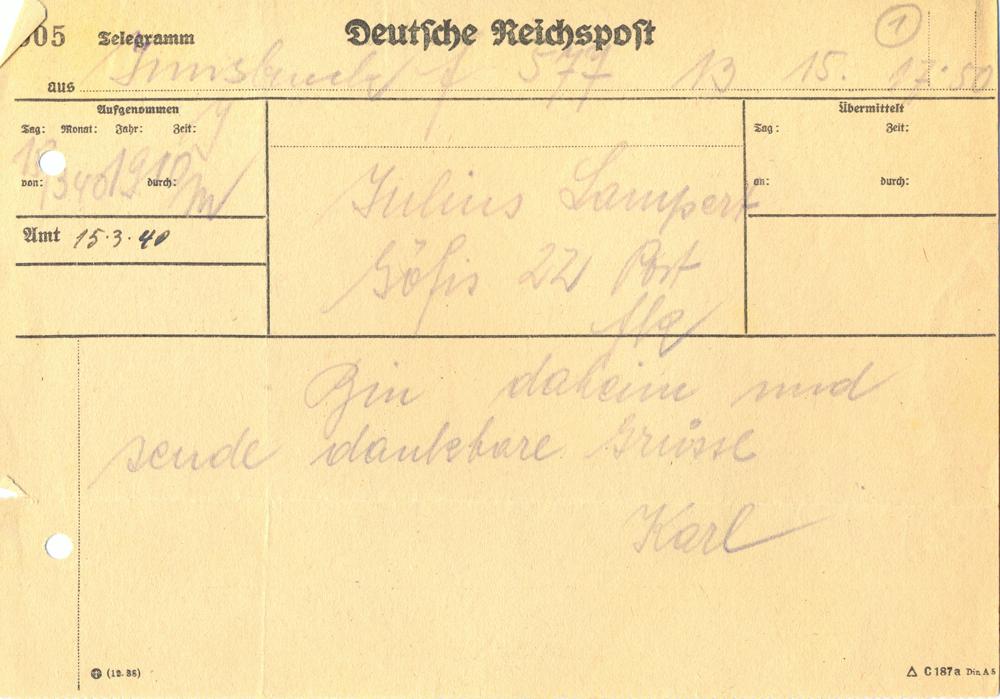 005 Telegramm Deutsche Reichspost 1
aus Innsbruck f 577 13 15. 17.50
Aufgenommen
Tag: Monat: Jahr: Zeit:
von: durch:
Amt 15.3.40
Julius Lampert
Göfis 22 Post
Übermittelt
Tag: Zeit:
an: durch:
Bin daheim und
sende dankbare Grüsse
Karl
(12. 38)
C 187a Din A 5